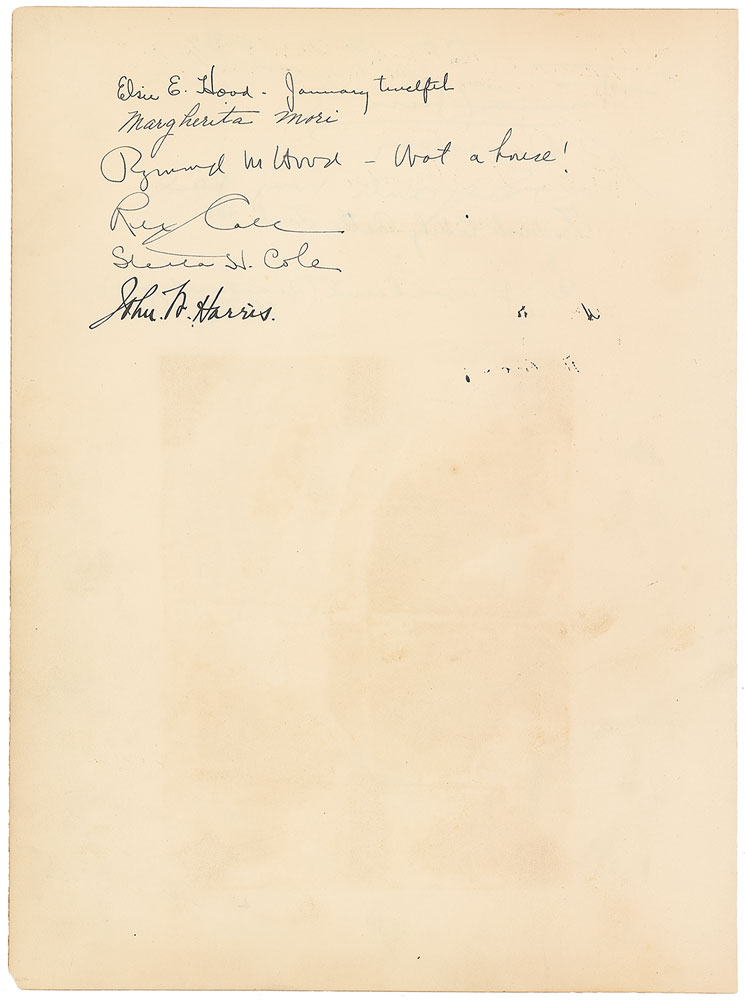 Elsie E. Hood - January twelfth
Margherita Mori
Raymond M Hood - What a house!
Rex Cole
Stella H. Cole
John B. Harris.